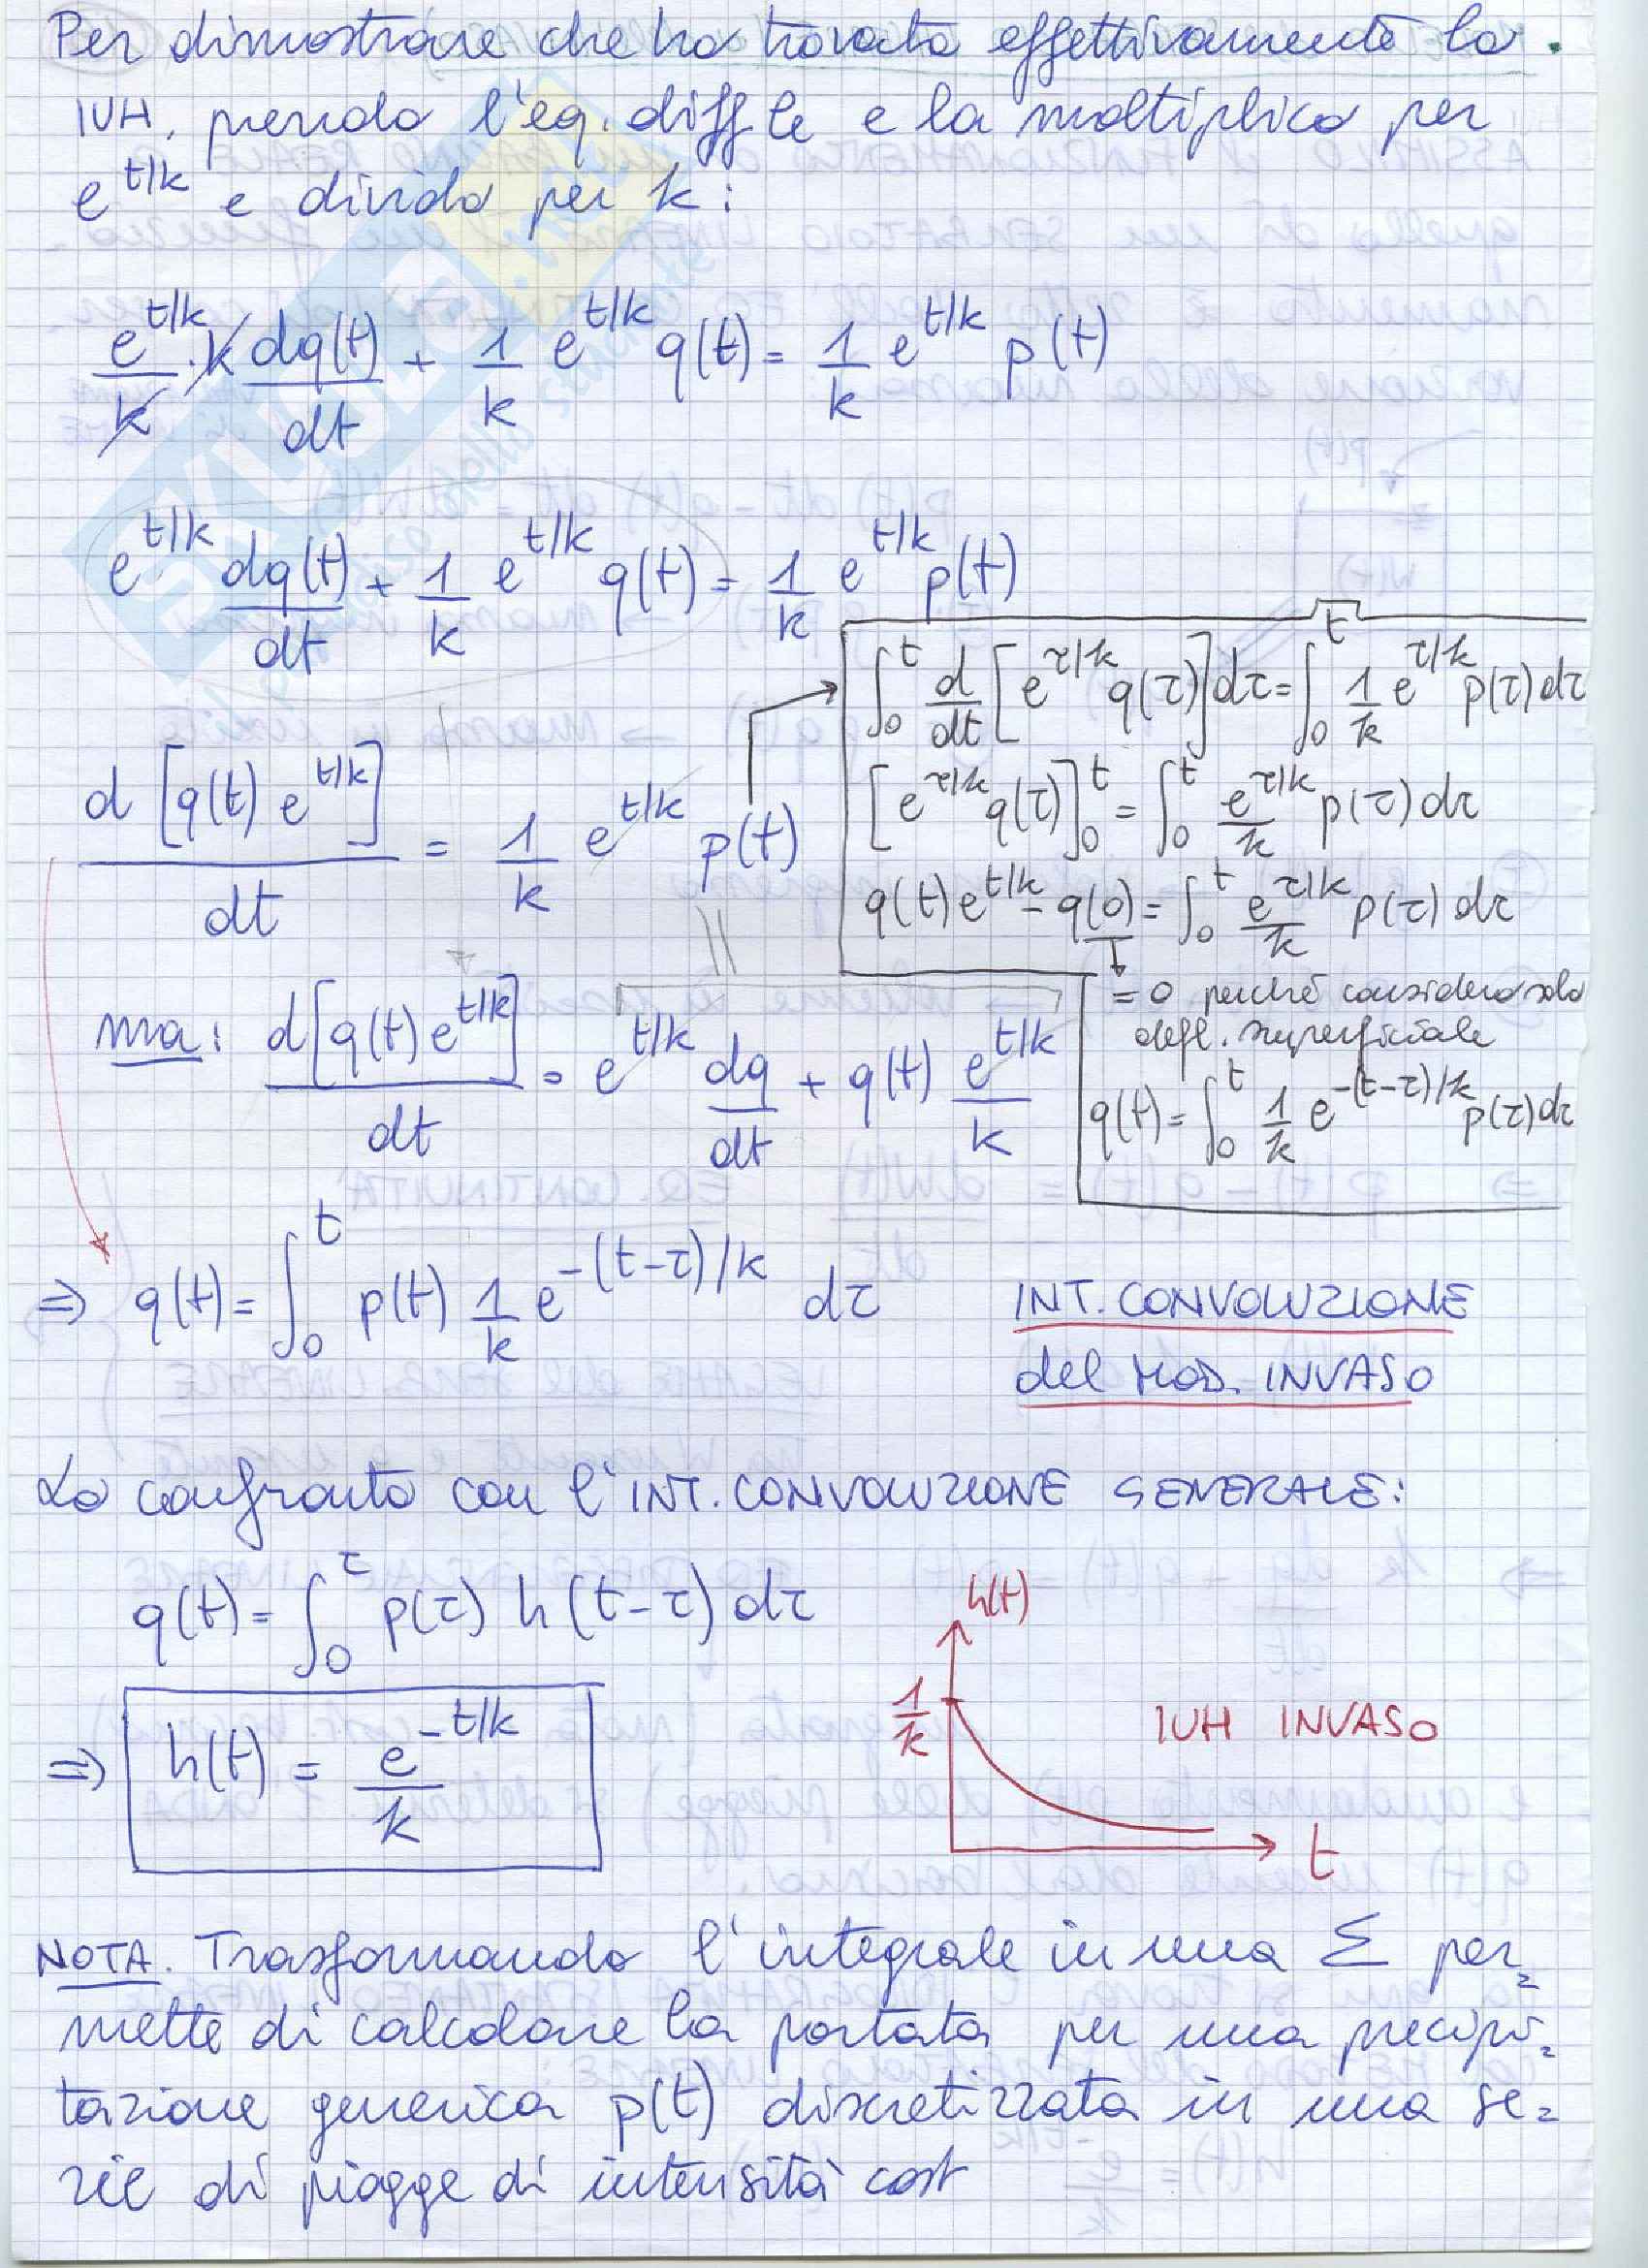 Per dimostrare che ho trovato effettivamente lo
IUH, prendo l'eq. diff.le e la moltiplico per
e^{t/k} e divido per k:
e^{t/k}/k · k dq(t)/dt + 1/k e^{t/k} q(t) = 1/k e^{t/k} p(t)
e^{t/k} dq(t)/dt + 1/k e^{t/k} q(t) = 1/k e^{t/k} p(t)
d[q(t) e^{t/k}]/dt = 1/k e^{t/k} p(t)
∫_0^t d/dt [e^{τ/k} q(τ)] dτ = ∫_0^t 1/k e^{τ/k} p(τ) dτ
[e^{τ/k} q(τ)]_0^t = ∫_0^t e^{τ/k}/k p(τ) dτ
q(t) e^{t/k} - q(0) = ∫_0^t e^{τ/k}/k p(τ) dτ
= 0 perché considero solo
defl. superficiale
q(t) = ∫_0^t 1/k e^{-(t-τ)/k} p(τ) dτ
ma: d[q(t) e^{t/k}]/dt = e^{t/k} dq/dt + q(t) e^{t/k}/k
⇒ q(t) = ∫_0^t p(t) 1/k e^{-(t-τ)/k} dτ
INT. CONVOLUZIONE
del MOD. INVASO
Lo confronto con l'INT. CONVOLUZIONE GENERALE:
q(t) = ∫_0^τ p(τ) h(t-τ) dτ
⇒ h(t) = e^{-t/k}/k
h(t)
1/k
IUH INVASO
t
NOTA. Trasformando l'integrale in una Σ per=
mette di calcolare la portata per una precipi=
tazione generica p(t) discretizzata in una se=
rie di piogge di intensità cost